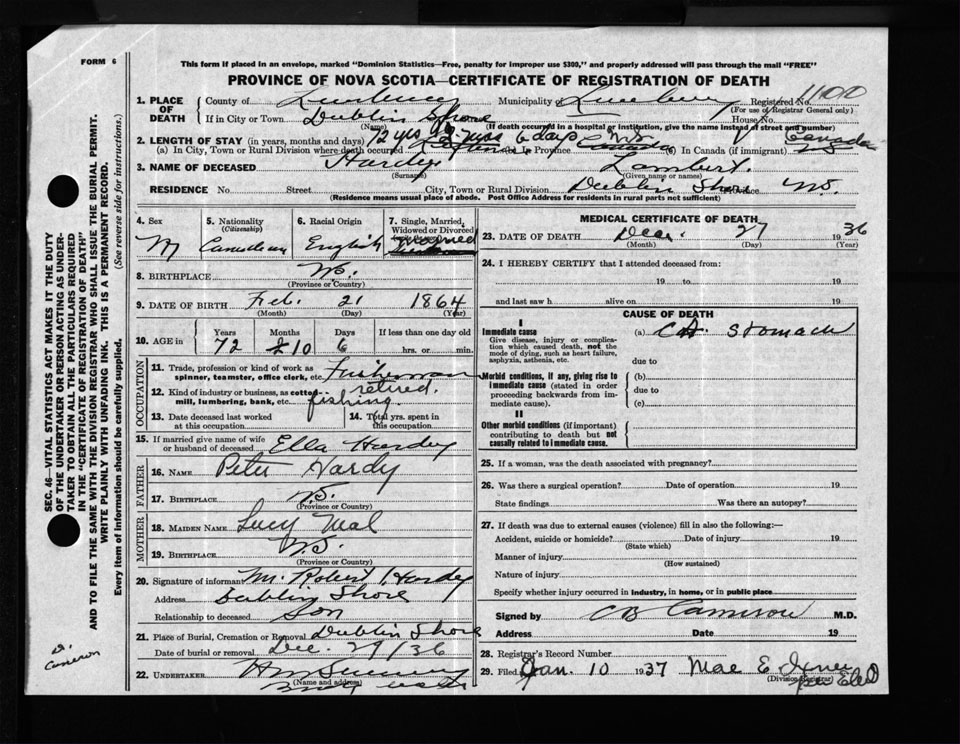 FORM 6
This form if placed in an envelope, marked "Dominion Statistics—Free, penalty for improper use $300," and properly addressed will pass through the mail "FREE"
PROVINCE OF NOVA SCOTIA—CERTIFICATE OF REGISTRATION OF DEATH
1. PLACE OF DEATH
County of Lunenburg Municipality of Lunenburg Registered No. 4100
(For use of Registrar General only)
If in City or Town Dublin Shore House No.
(Name) (If death occurred in a hospital or institution, give the name instead of street and number)
2. LENGTH OF STAY (in years, months and days) 72 yrs 10 mos 6 days
(a) In City, Town or Rural Division where death occurred (b) In Province N.S. Canada (c) In Canada (if immigrant) Canada
3. NAME OF DECEASED Hardy Lambert
(Surname) (Given name or names)
RESIDENCE No. Street City, Town or Rural Division Dublin Shore Province N.S.
(Residence means usual place of abode. Post Office Address for residents in rural parts not sufficient)
4. Sex M
5. Nationality (Citizenship) Canadian
6. Racial Origin English
7. Single, Married, Widowed or Divorced
8. BIRTHPLACE N.S.
(Province or Country)
9. DATE OF BIRTH Feb. 21 1864
(Month) (Day) (Year)
10. AGE in Years Months Days If less than one day old
72 10 6 hrs. or min.
OCCUPATION
11. Trade, profession or kind of work as spinner, teamster, office clerk, etc. Fisherman
retired
12. Kind of industry or business, as cotton-mill, lumbering, bank, etc. fishing
13. Date deceased last worked at this occupation
14. Total yrs. spent in this occupation
15. If married give name of wife or husband of deceased Ella Hardy
FATHER
16. NAME Peter Hardy
17. BIRTHPLACE N.S.
(Province or Country)
MOTHER
18. MAIDEN NAME Lucy
19. BIRTHPLACE N.S.
(Province or Country)
20. Signature of informant Mr. Robert Hardy
Address Dublin Shore
Relationship to deceased Son
21. Place of Burial, Cremation or Removal Dublin Shore
Date of burial or removal Dec. 29/36
22. UNDERTAKER
(Name and address)
MEDICAL CERTIFICATE OF DEATH
23. DATE OF DEATH Dec. 27 1936
(Month) (Day) (Year)
24. I HEREBY CERTIFY that I attended deceased from:
19 to 19
and last saw h alive on 19
CAUSE OF DEATH
I
Immediate cause (a) Ca Stomach
Give disease, injury or complication which caused death, not the mode of dying, such as heart failure, asphyxia, asthenia, etc.
due to
Morbid conditions, if any, giving rise to immediate cause (stated in order proceeding backwards from immediate cause).
(b)
due to
(c)
II
Other morbid conditions (if important) contributing to death but not causally related to immediate cause.
25. If a woman, was the death associated with pregnancy?
26. Was there a surgical operation? Date of operation 19
State findings Was there an autopsy?
27. If death was due to external causes (violence) fill in also the following:—
Accident, suicide or homicide? Date of injury 19
(State which)
Manner of injury
(How sustained)
Nature of injury
Specify whether injury occurred in industry, in home, or in public place
Signed by C B Cameron M.D.
Address Date 19
28. Registrar's Record Number
29. Filed Jan. 10 1937 Mae E
(Division Registrar)
SEC. 46—VITAL STATISTICS ACT MAKES IT THE DUTY
OF THE UNDERTAKER OR PERSON ACTING AS UNDER-
TAKER TO OBTAIN ALL THE PARTICULARS REQUIRED
IN THE "CERTIFICATE OF REGISTRATION OF DEATH"
AND TO FILE THE SAME WITH THE DIVISION REGISTRAR WHO SHALL ISSUE THE BURIAL PERMIT.
WRITE PLAINLY WITH UNFADING INK. THIS IS A PERMANENT RECORD.
Every item of information should be carefully supplied. (See reverse side for instructions.)
Dr. Cameron